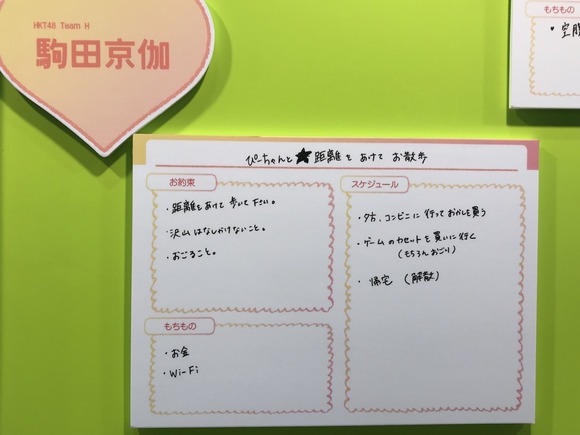 HKT48 Team H
駒田京伽
もちもの
ぴーちゃんと★距離をあけて お散歩
お約束
・距離をあけて 歩いて下さい。
・沢山はなしかけないこと。
・おごること。
もちもの
・お金
・Wi-Fi
スケジュール
・夕方、コンビニに行っておかしを買う
・ゲームのカセットを買いに行く
(もちろんおごり)
・帰宅 (解散)